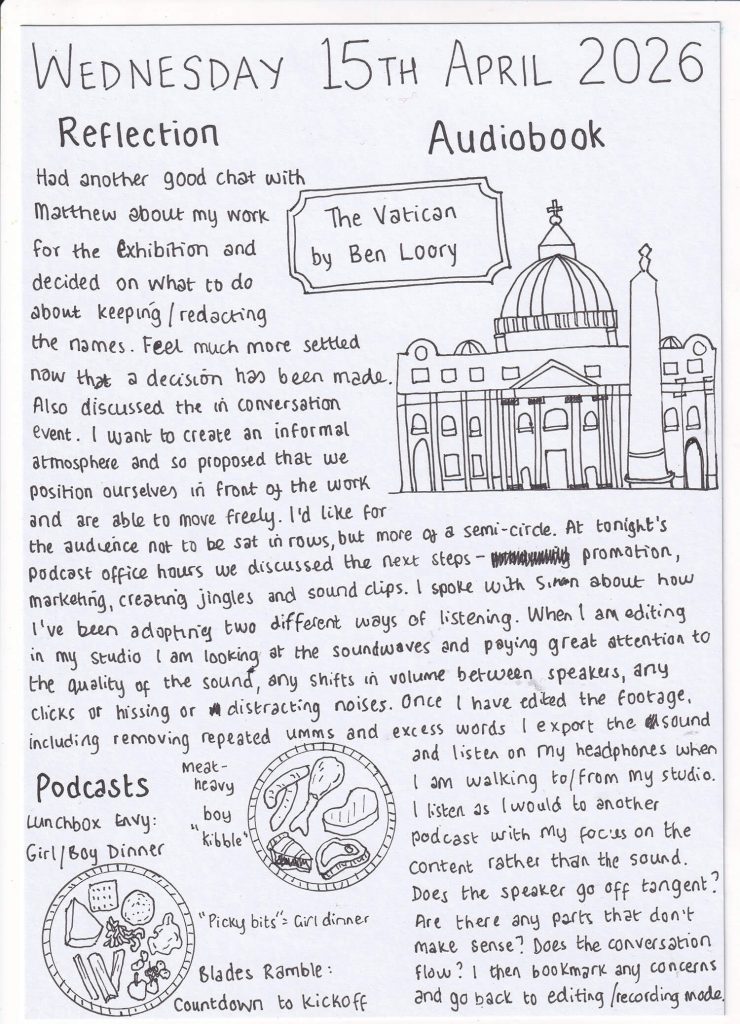 WEDNESDAY 15TH APRIL 2026
Reflection
Had another good chat with
Matthew about my work
for the Exhibition and
decided on what to do
about keeping/redacting
the names. Feel much more settled
now that a decision has been made.
Also discussed the in conversation
event. I want to create an informal
atmosphere and so proposed that we
position ourselves in front of the work
and are able to move freely. I'd like for
the audience not to be sat in rows, but more of a semi-circle. At tonight's
podcast office hours we discussed the next steps - promotion,
marketing, creating jingles and sound clips. I spoke with about how
I've been adopting two different ways of listening. When I am editing
in my studio I am looking at the soundwaves and paying great attention to
the quality of the sound, any shifts in volume between speakers, any
clicks or hissing or distracting noises. Once I have edited the footage,
including removing repeated umms and excess words I export the sound
and listen on my headphones when
I am walking to/from my studio.
I listen as I would to another
podcast with my focus on the
content rather than the sound.
Does the speaker go off tangent?
Are there any parts that don't
make sense? Does the conversation
flow? I then bookmark any concerns
and go back to editing/recording mode.
Audiobook
The Vatican
by Ben Loory
Podcasts
Lunchbox Envy:
Girl/Boy Dinner
meat-
heavy
boy
"kibble"
"Picky bits" = Girl dinner
Blades Ramble:
Countdown to Kickoff